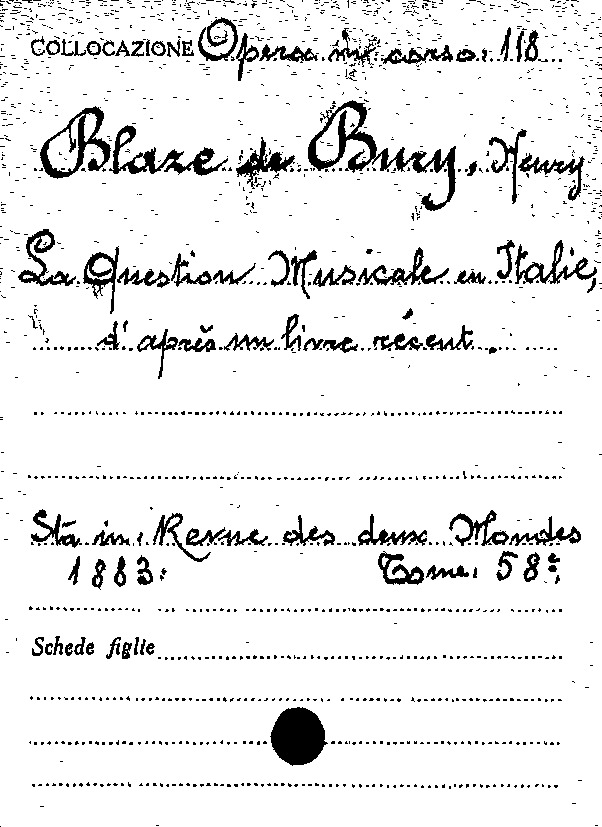 COLLOCAZIONE Opera in corso. 118
Blaze de Bury, Henry
La Question Musicale en Italie,
d'après un livre récent.
Sta in. Revue des deux Mondes
1883. Tome. 58e.
Schede figlie